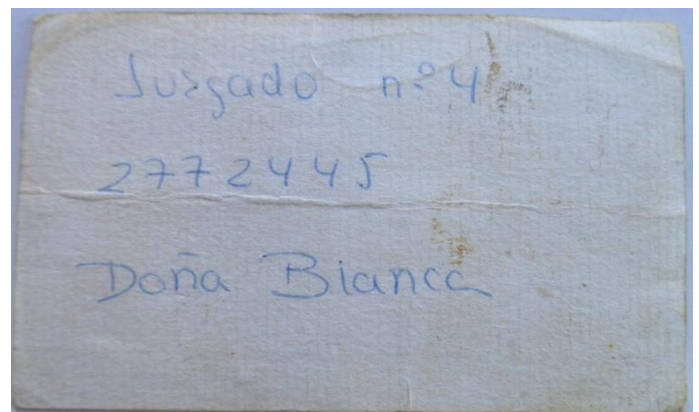 Juzgado n.º 4
2772445
Doña Bianca